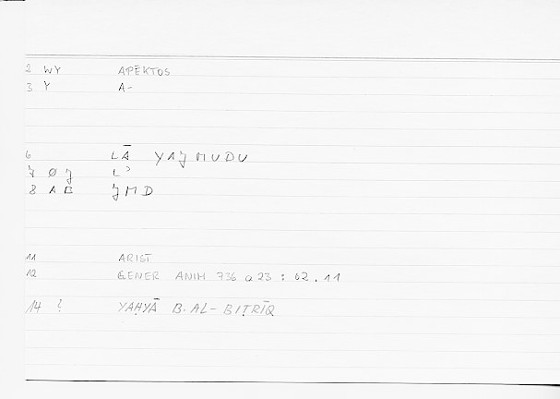 2 WY APĒKTOS
3 Y A-
6 LĀ YAJMUDU
7 Ø J L'
8 AB JMD
11 ARIST
12 GENER ANIM 736 a 23 : 62.11
14 YAḤYĀ B. AL-BIṬRĪQ